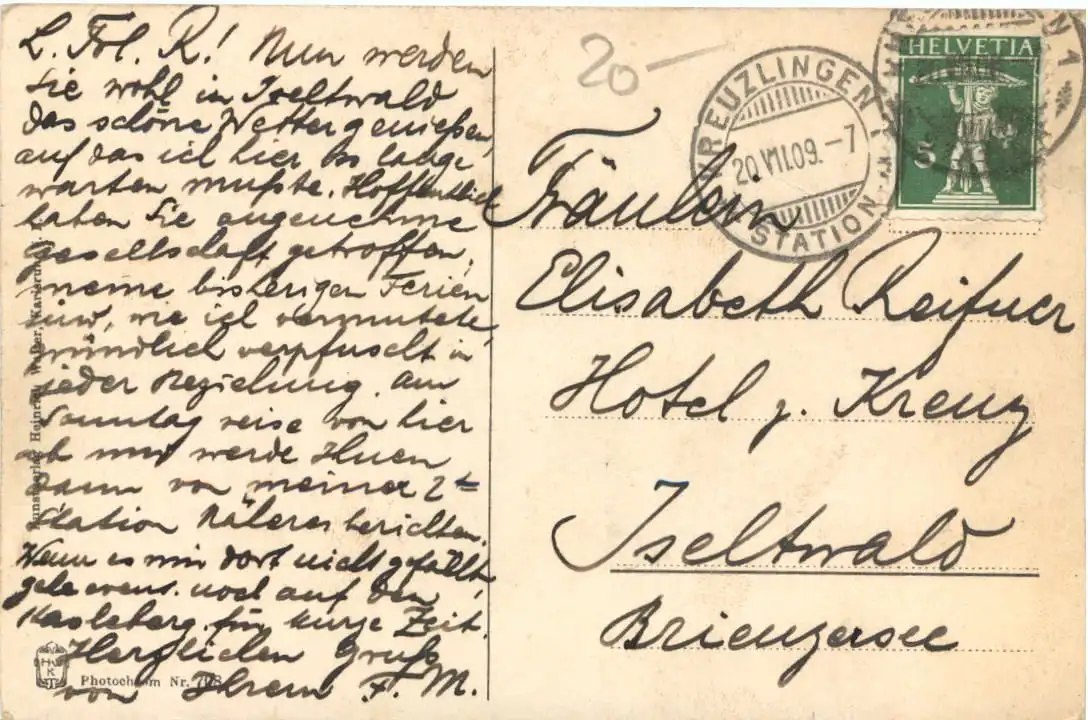 L. Frl. R! Nun werden
Sie wohl in Iseltwald
das schöne Wetter genießen,
auf das ich hier so lange
warten mußte. Hoffentlich
haben Sie angenehme
Gesellschaft getroffen,
meine bisherigen Ferien
sind, wie ich vermutete
gründlich verpfuscht in
jeder Beziehung. Am
Sonntag reise von hier
ab und werde Ihnen
dann von meiner 2ten
Station Näheres berichten.
Wenn es mir dort nicht gefällt,
gehe event. noch auf den
für kurze Zeit.
Herzlichen Gruß
von Ihrem F. M.
Kunstverlag Heinrich
Photochrom Nr.
HK
20—
KREUZLINGEN
20.VII.09.–7
STATION
HELVETIA
5
N 1
Fräulein
Elisabeth
Hotel z. Kreuz
Iseltwald
Brienzersee